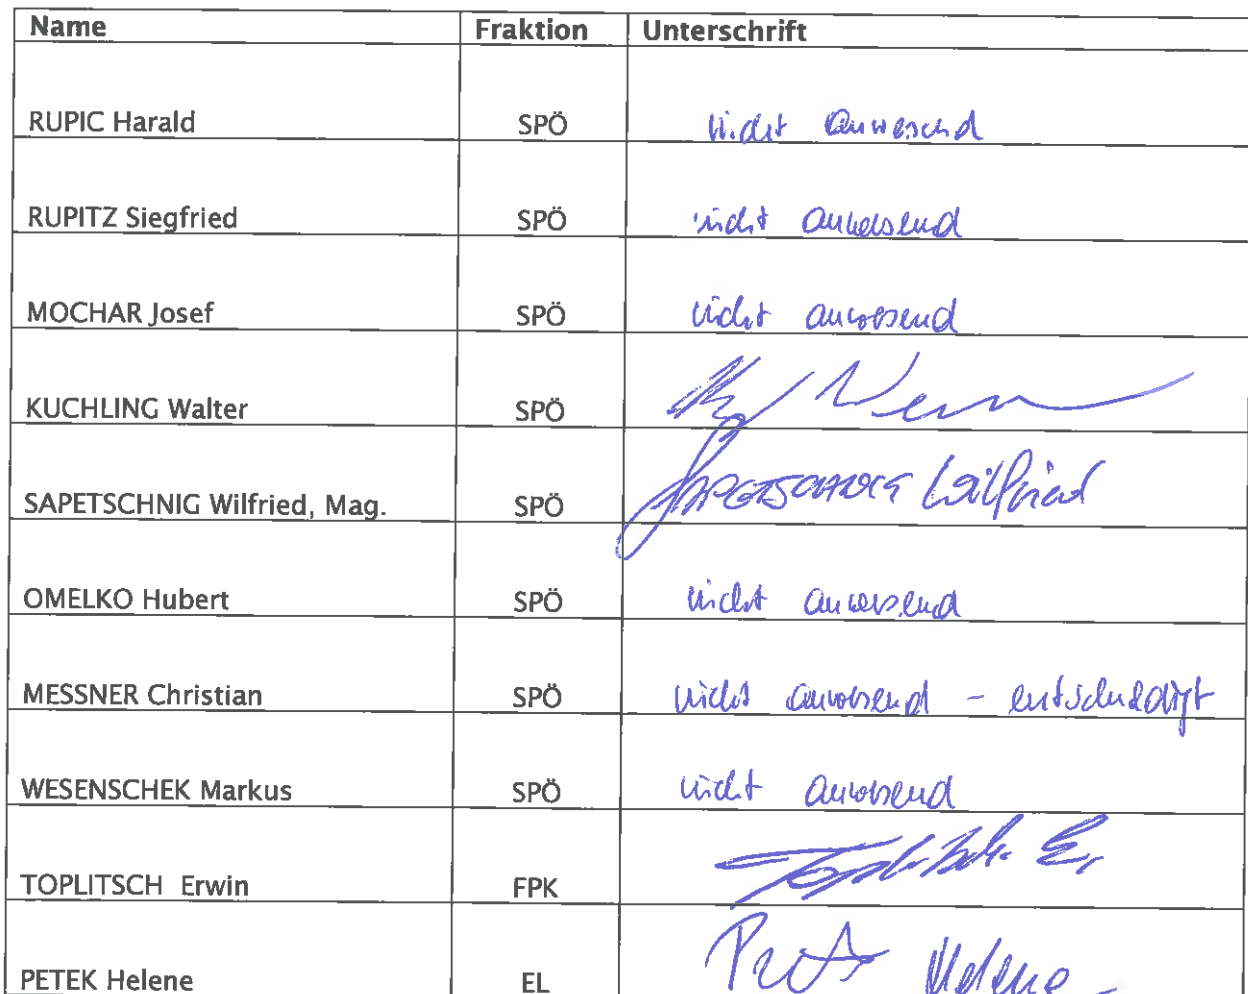 Name Fraktion Unterschrift
RUPIC Harald SPÖ nicht anwesend
RUPITZ Siegfried SPÖ nicht anwesend
MOCHAR Josef SPÖ nicht anwesend
KUCHLING Walter SPÖ
SAPETSCHNIG Wilfried, Mag. SPÖ SAPETSCHNIG Wilfried
OMELKO Hubert SPÖ nicht anwesend
MESSNER Christian SPÖ nicht anwesend - entschuldigt
WESENSCHEK Markus SPÖ nicht anwesend
TOPLITSCH Erwin FPK Toplitsch E.
PETEK Helene EL Petek Helene